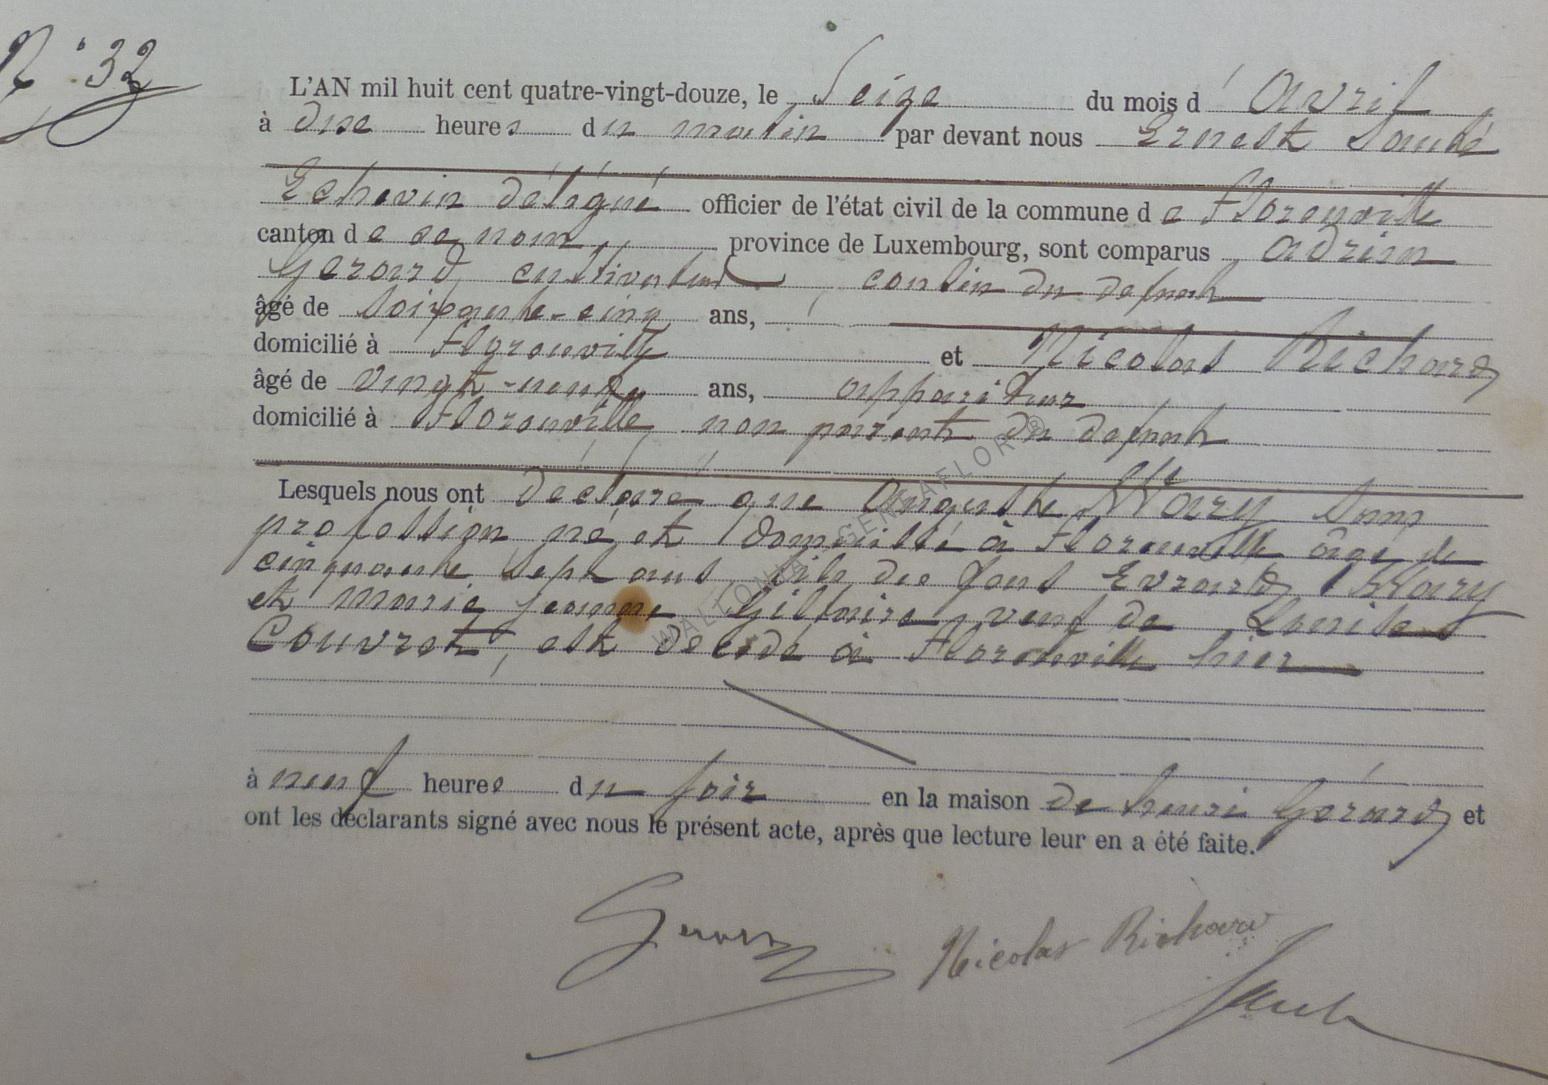 N° 32
L'AN mil huit cent quatre-vingt-douze, le Seize du mois d'avril
à dise heures du matin par devant nous Ernest
Echevin délégué officier de l'état civil de la commune de Florenville
canton de ce nom, province de Luxembourg, sont comparus adrien
Gerard, cultivateur, cousin du defunt
âgé de soixante-cinq ans,
domicilié à Florenville et Nicolas Richard
âgé de vingt-neuf ans, appariteur
domicilié à Florenville non parent du defunt
Lesquels nous ont déclaré que Auguste Stary sans
profession né et domicilié à Florenville âgé de
cinquante sept ans fils de feus Evrard Stary
et marie jeanne veuf de Louise
Couvret, est décédé à Florenville hier
à neuf heures du soir en la maison de henri Gérard et
ont les déclarants signé avec nous le présent acte, après que lecture leur en a été faite.
Gerard Nicolas Richard
WALLONIA